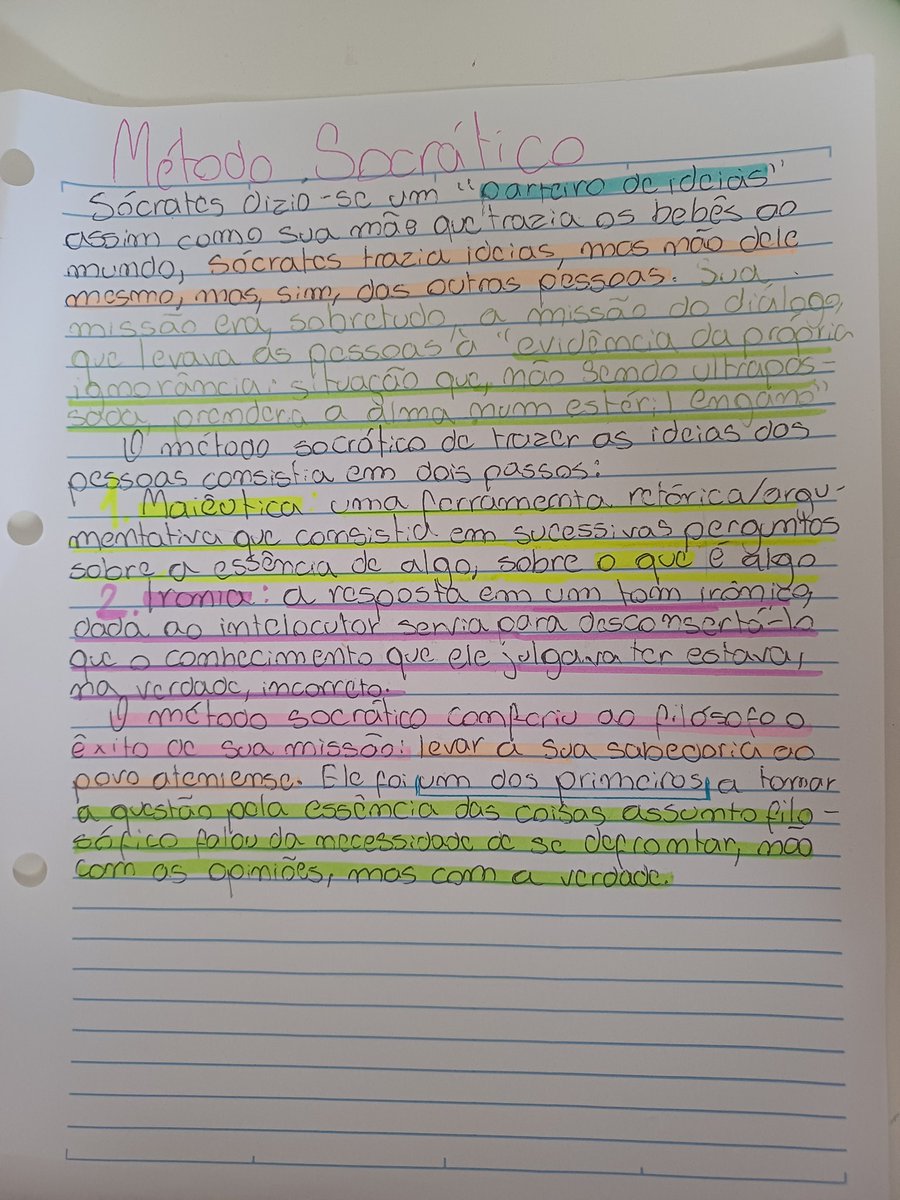 Método Socrático
Sócrates dizia-se um "parteiro de ideias"
assim como sua mãe que trazia os bebês ao
mundo, Sócrates trazia ideias, mas não dele
mesmo, mas, sim, das outras pessoas. Sua
missão era, sobretudo, a missão do diálogo,
que levava as pessoas à "evidência da própria
ignorância: situação que, não sendo ultrapas-
sada, prenderá a alma num estéril engano"
O método socrático de trazer as ideias das
pessoas consistia em dois passos:
1. Maiêutica: uma ferramenta retórica/argu-
mentativa que consistia em sucessivas perguntas
sobre a essência de algo, sobre o que é algo
2. Ironia: a resposta em um tom irônico,
dada ao intelocutor servia para desconsertá-lo
que o conhecimento que ele julgava ter estava,
na verdade, incorreto.
O método socrático conferiu ao filósofo o
êxito de sua missão: levar a sua sabedoria ao
povo ateniense. Ele foi um dos primeiros a tornar
a questão pela essência das coisas assunto filo-
sófico falou da necessidade de se defrontar, não
com as opiniões, mas com a verdade.